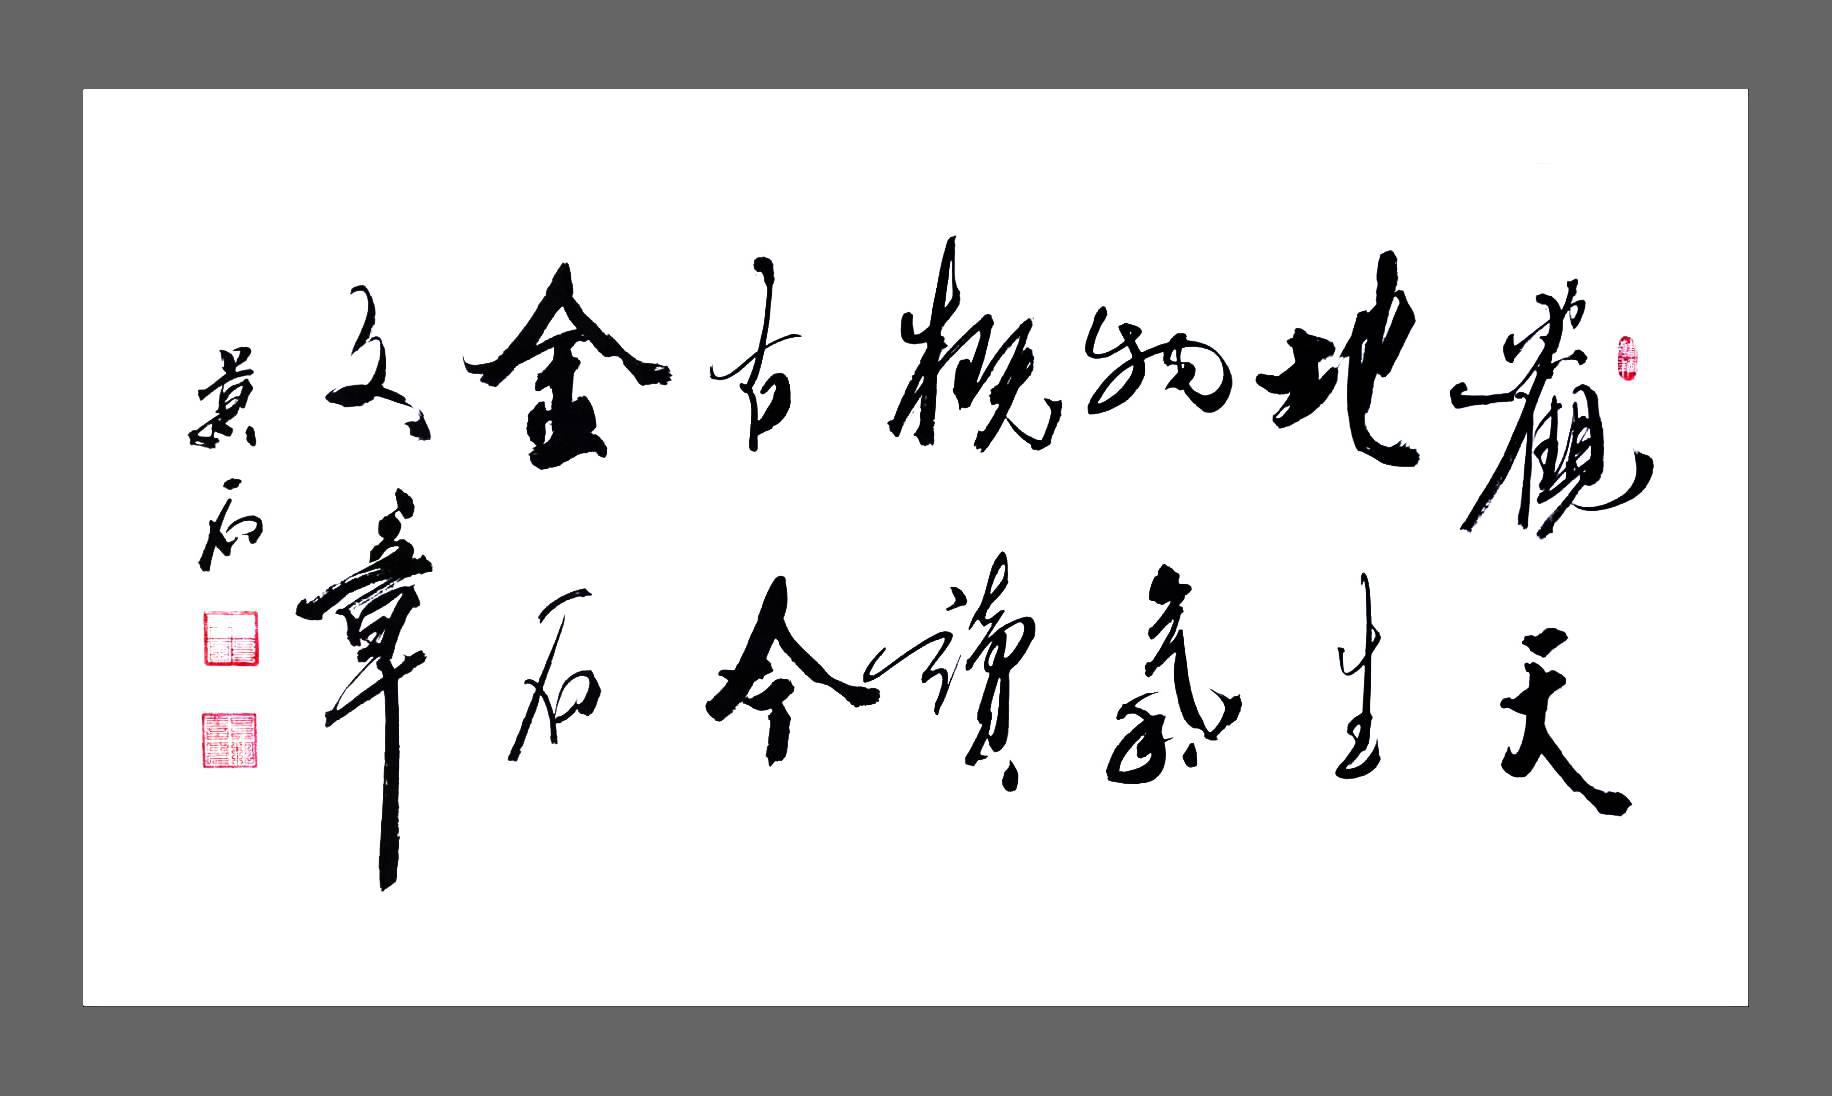 觀天
地生
物氣
概讀
古今
金石
文章
黄石